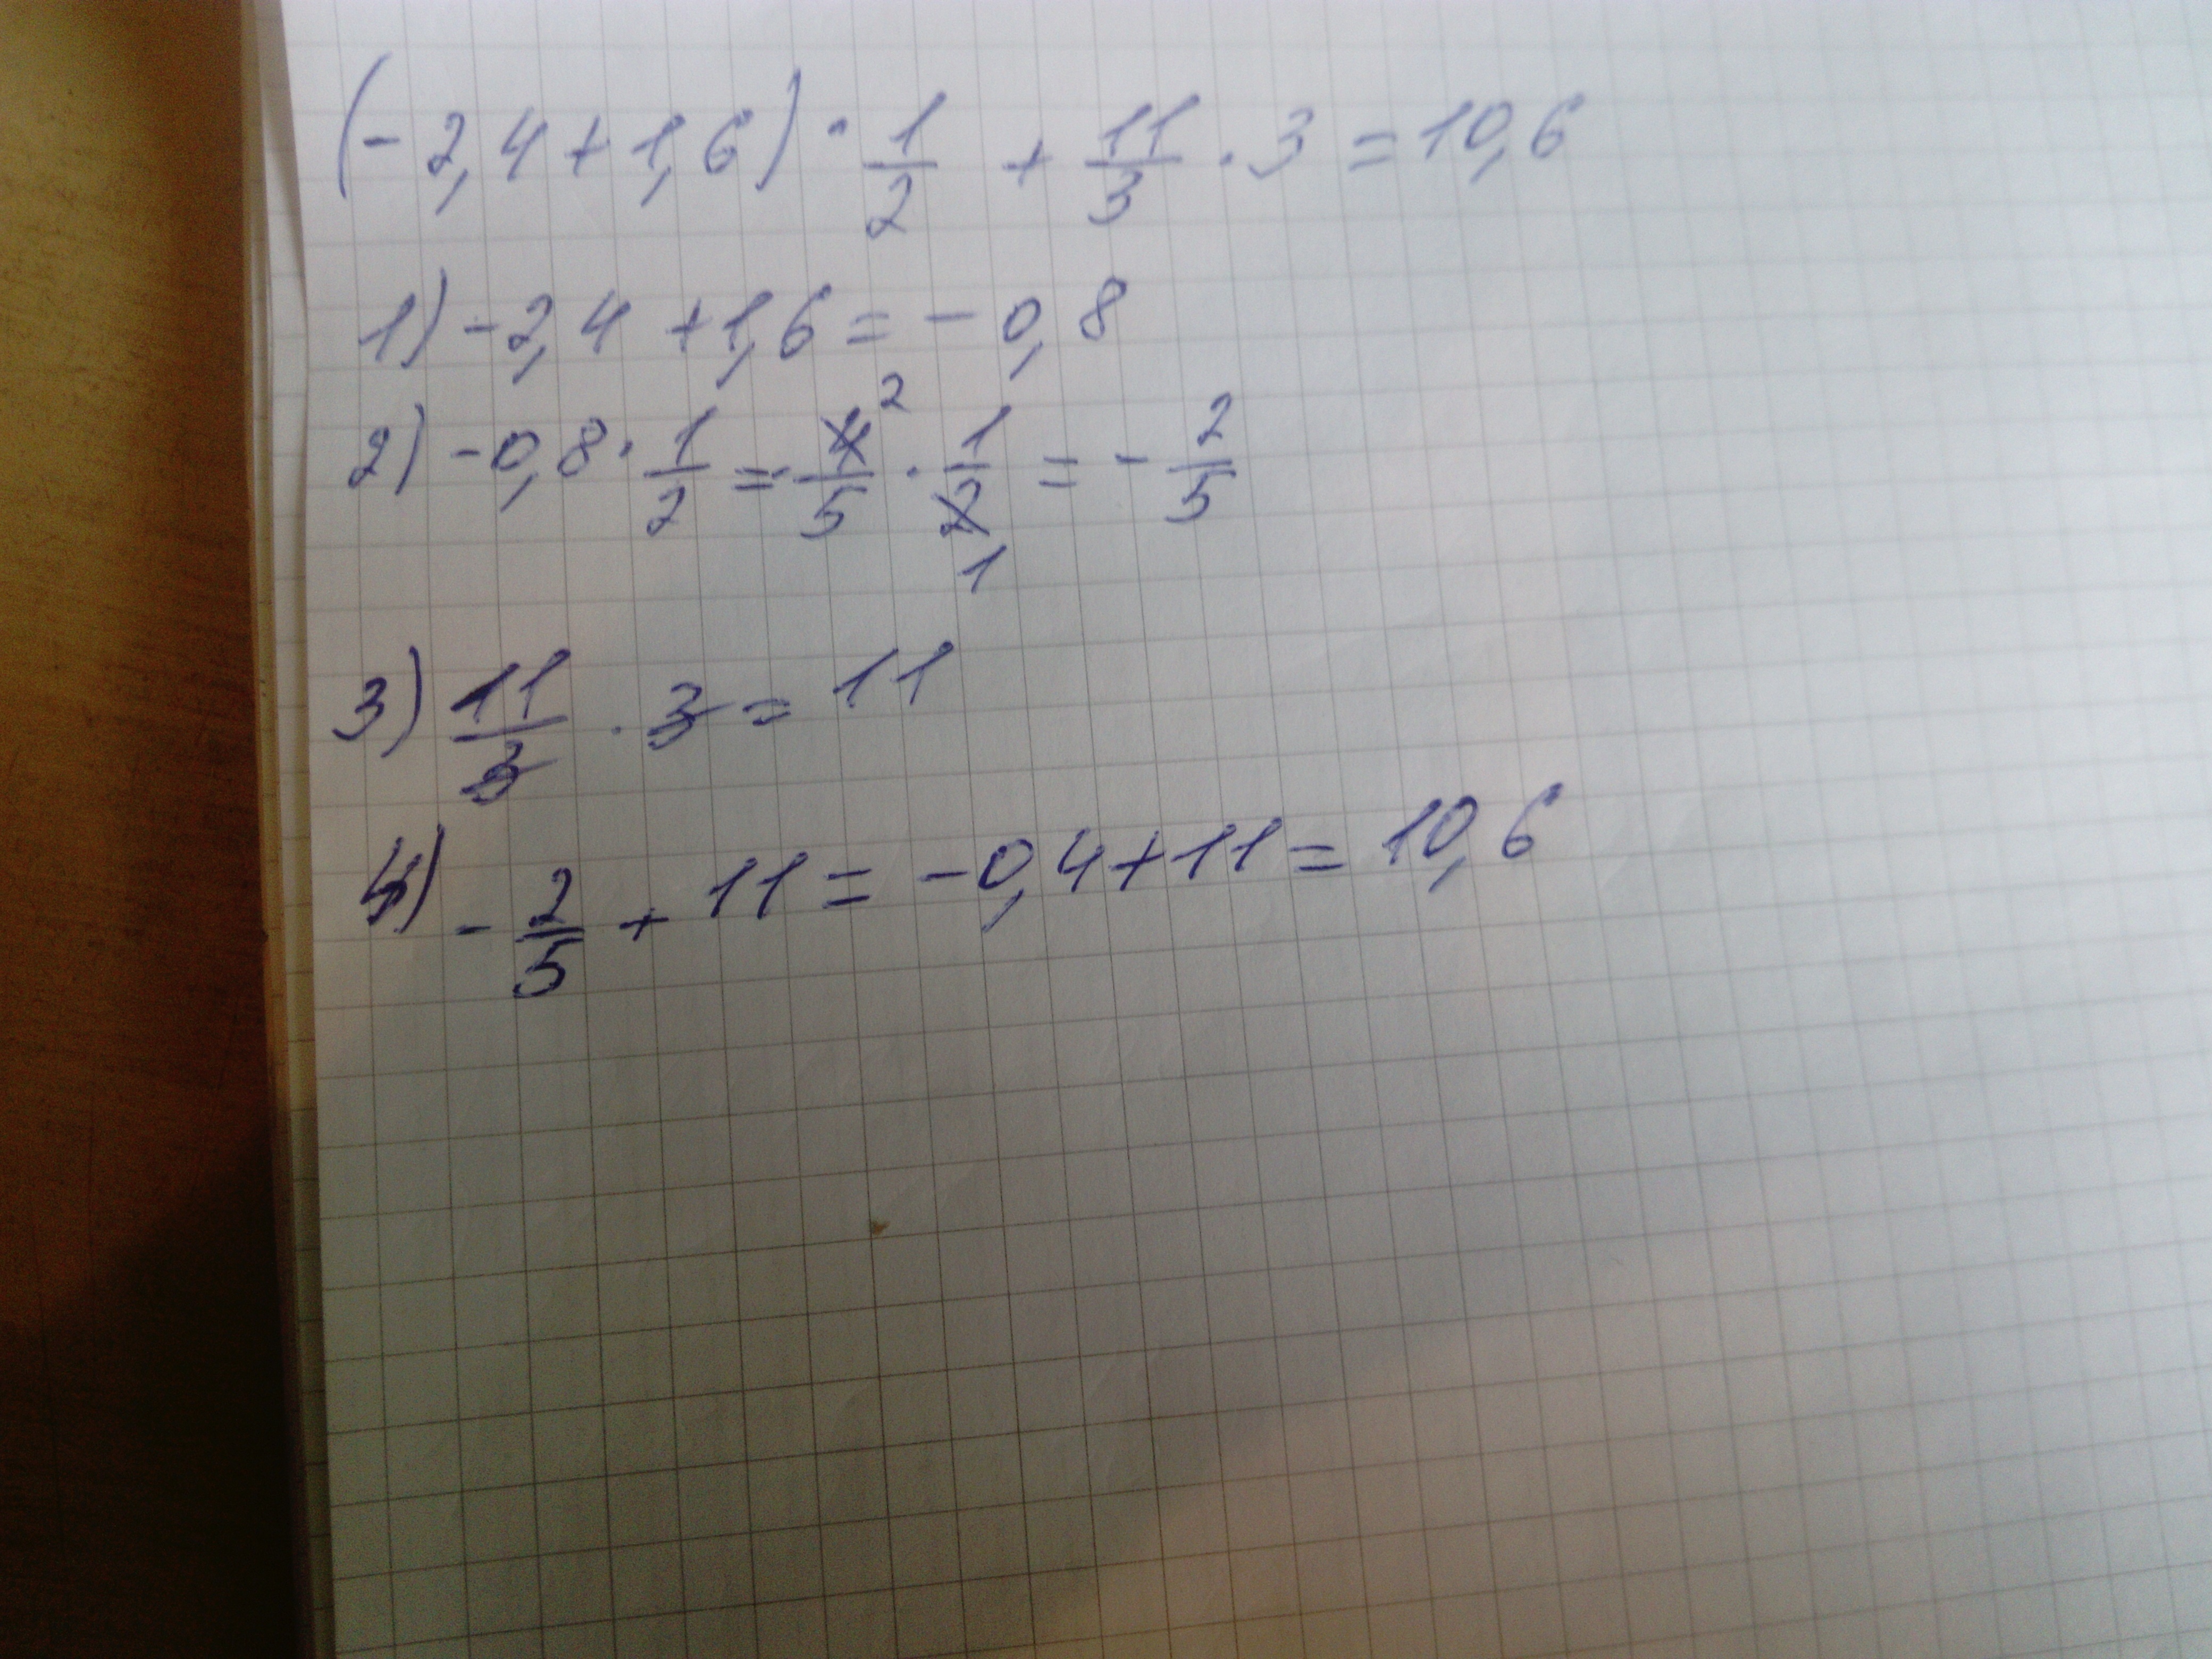 (-2,4+1,6)·1/2 + 11/3·3=10,6
1) -2,4+1,6=-0,8
2) -0,8·1/2=-4/5·1/2=-2/5
2
1
3) 11/3·3=11
4) -2/5+11=-0,4+11=10,6